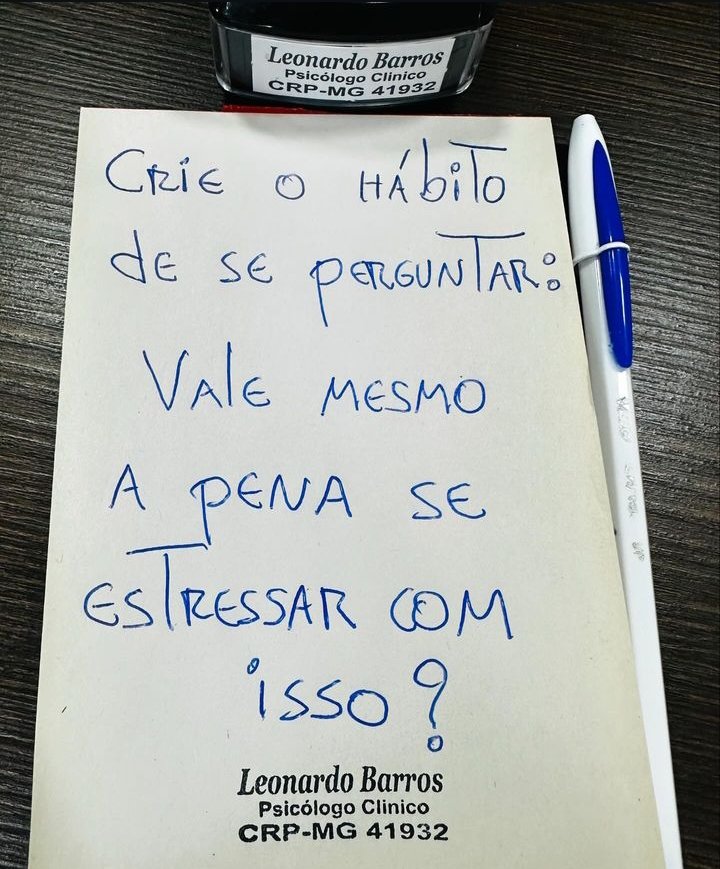 Leonardo Barros
Psicólogo Clinico
CRP-MG 41932
CRIE O HÁBITO
DE SE PERGUNTAR:
VALE MESMO
A PENA SE
ESTRESSAR COM
ISSO?
Leonardo Barros
Psicólogo Clinico
CRP-MG 41932